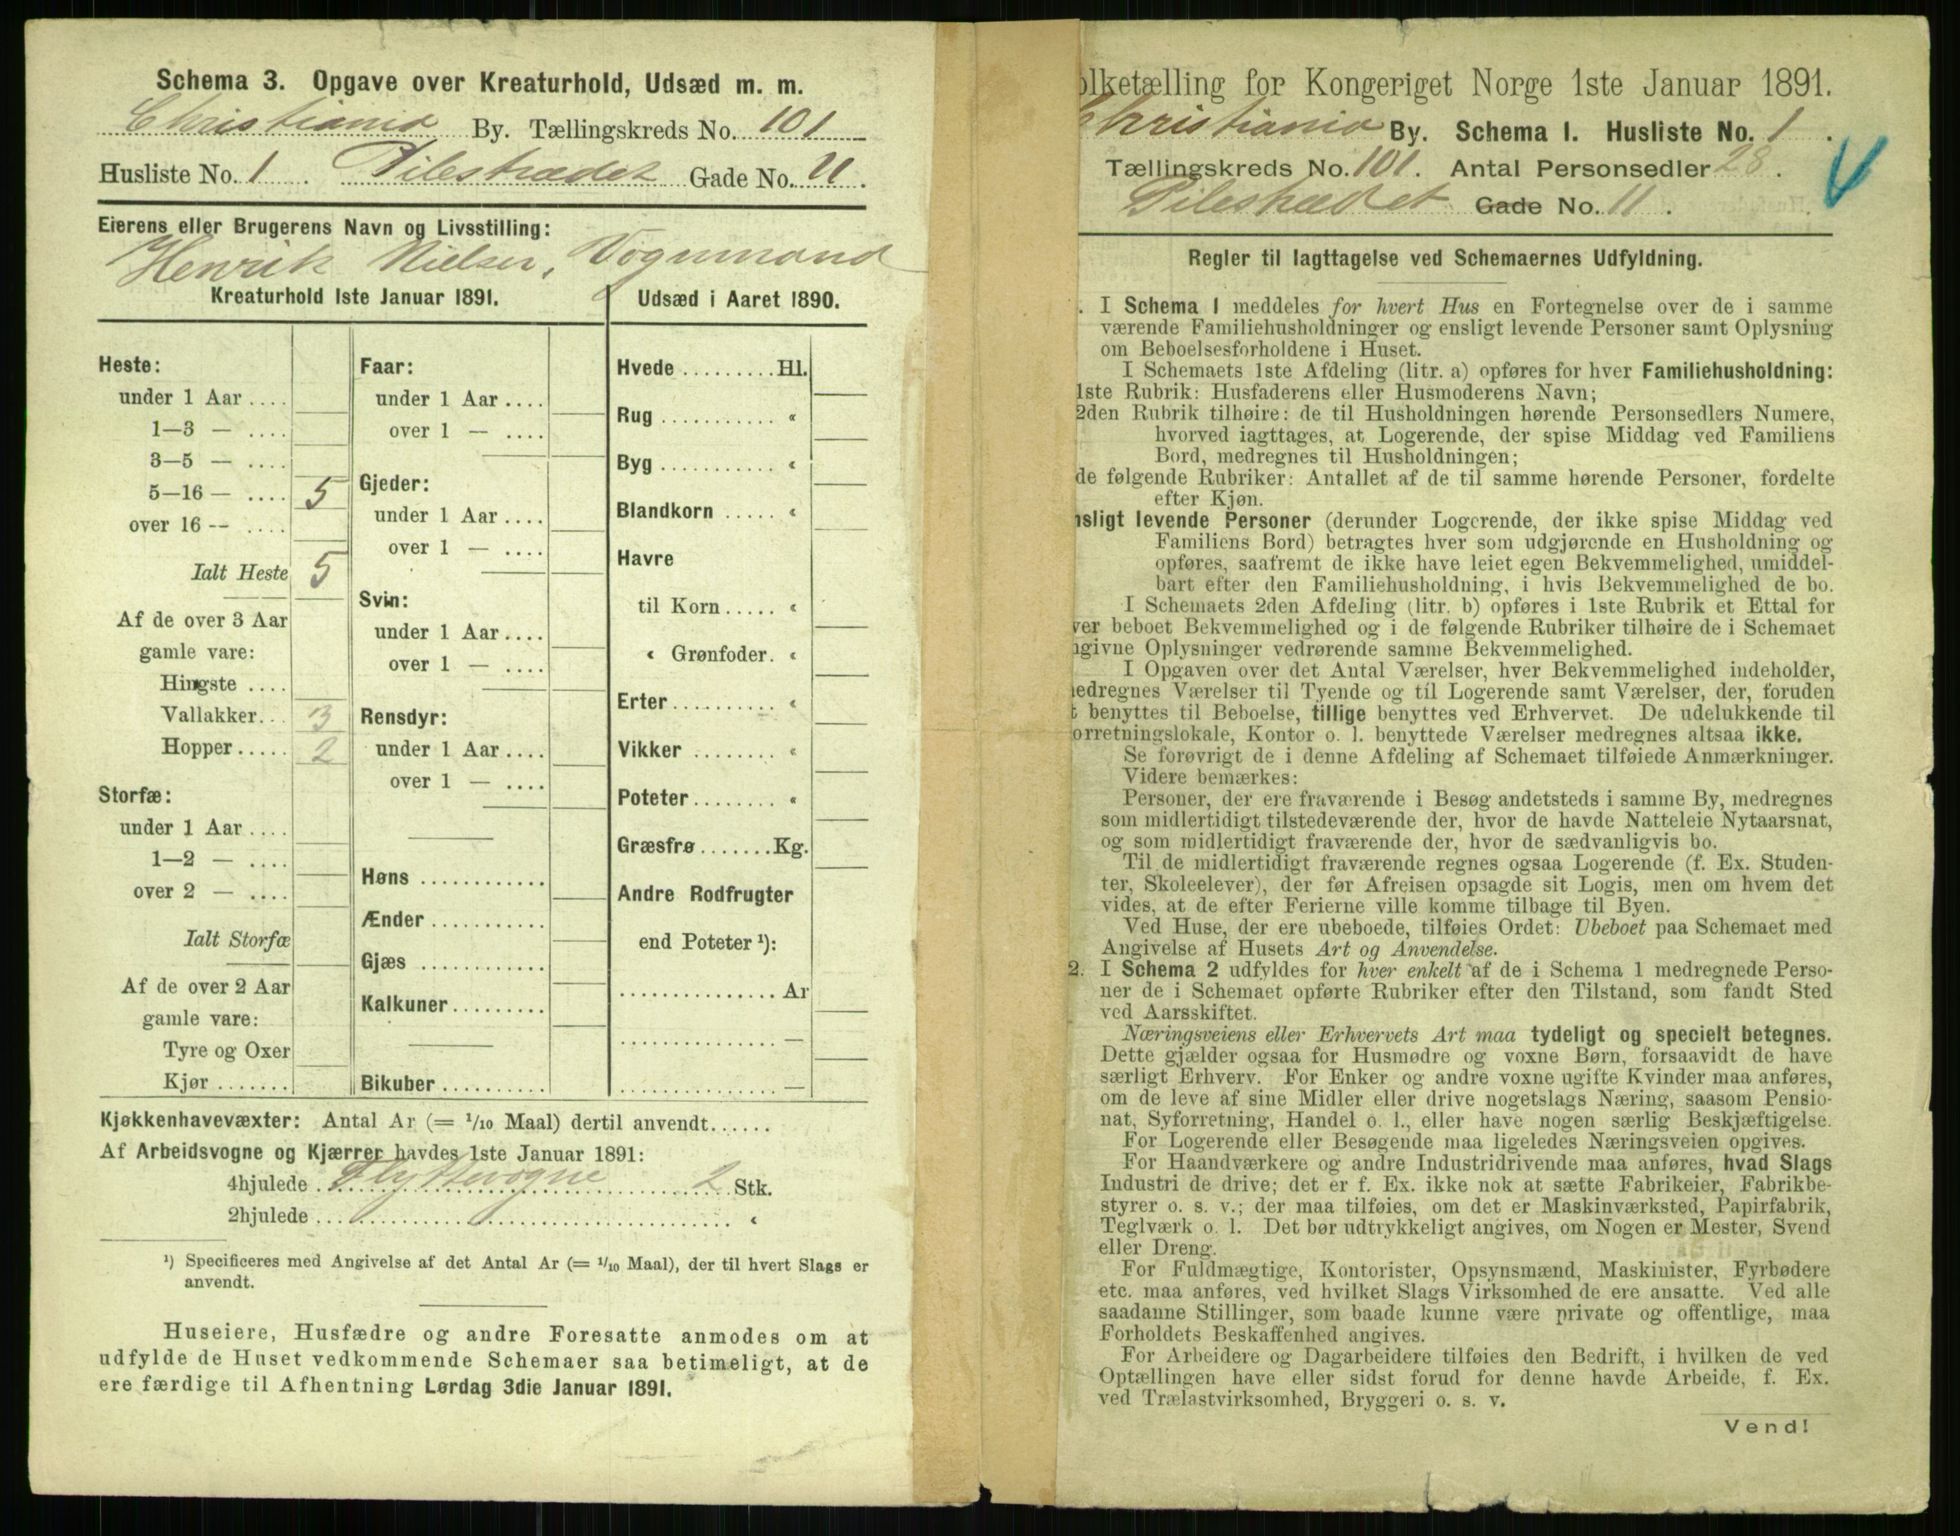 Schema 3. Opgave over Kreaturhold, Udsæd m. m.
Christiania By. Tællingskreds No. 101
Husliste No. 1 Pilestrædet Gade No. 11.
Eierens eller Brugerens Navn og Livsstilling:
Henrik Nielsen, Vognmand
Kreaturhold 1ste Januar 1891.
Heste:
under 1 Aar ....
1—3 — ....
3—5 — ....
5—16 — .... 5
over 16 -- ....
Ialt Heste 5
Af de over 3 Aar
gamle vare:
Hingste ....
Vallakker... 3
Hopper..... 2
Storfæ:
under 1 Aar ....
1—2 — ....
over 2 — ....
Ialt Storfæ
Af de over 2 Aar
gamle vare:
Tyre og Oxer
Kjør.......
Faar:
under 1 Aar ....
over 1 — ....
Gjeder:
under 1 Aar ....
over 1 — ....
Svin:
under 1 Aar....
over 1 — ....
Rensdyr:
under 1 Aar....
over 1 — ....
Høns ............
Ænder ............
Gjæs ............
Kalkuner.........
Bikuber..........
Udsæd i Aaret 1890.
Hvede ......... Hl.
Rug ........... «
Byg ........... «
Blandkorn ..... «
Havre
til Korn ..... «
« Grønfoder. «
Erter......... «
Vikker ........ «
Poteter........ «
Græsfrø....... Kg.
Andre Rodfrugter
end Poteter ¹):
............... Ar
............... —
............... —
Kjøkkenhavevæxter: Antal Ar (= 1/10 Maal) dertil anvendt......
Af Arbeidsvogne og Kjærrer havdes 1ste Januar 1891:
4hjulede . Flyttevogne 2 Stk.
2hjulede .................... «
¹) Specificeres med Angivelse af det Antal Ar (= 1/10 Maal), der til hvert Slags er
anvendt.
Huseiere, Husfædre og andre Foresatte anmodes om at
udfylde de Huset vedkommende Schemaer saa betimeligt, at de
ere færdige til Afhentning Lørdag 3die Januar 1891.
olketælling for Kongeriget Norge 1ste Januar 1891.
Christiania By. Schema 1. Husliste No. 1.
Tællingskreds No. 101. Antal Personsedler 28.
Pilestrædet Gade No. 11.
Regler til Iagttagelse ved Schemaernes Udfyldning.
. I Schema 1 meddeles for hvert Hus en Fortegnelse over de i samme
værende Familiehusholdninger og ensligt levende Personer samt Oplysning
om Beboelsesforholdene i Huset.
I Schemaets 1ste Afdeling (litr. a) opføres for hver Familiehusholdning:
1ste Rubrik: Husfaderens eller Husmoderens Navn;
2den Rubrik tilhøire: de til Husholdningen hørende Personsedlers Numere,
hvorved iagttages, at Logerende, der spise Middag ved Familiens
Bord, medregnes til Husholdningen;
de følgende Rubriker: Antallet af de til samme hørende Personer, fordelte
efter Kjøn.
nsligt levende Personer (derunder Logerende, der ikke spise Middag ved
Familiens Bord) betragtes hver som udgjørende en Husholdning og
opføres, saafremt de ikke have leiet egen Bekvemmelighed, umiddel-
bart efter den Familiehusholdning, i hvis Bekvemmelighed de bo.
I Schemaets 2den Afdeling (litr. b) opføres i 1ste Rubrik et Ettal for
ver beboet Bekvemmelighed og i de følgende Rubriker tilhøire de i Schemaet
ngivne Oplysninger vedrørende samme Bekvemmelighed.
I Opgaven over det Antal Værelser, hver Bekvemmelighed indeholder,
edregnes Værelser til Tyende og til Logerende samt Værelser, der, foruden
t benyttes til Beboelse, tillige benyttes ved Erhvervet. De udelukkende til
orretningslokale, Kontor o. l. benyttede Værelser medregnes altsaa ikke.
Se forøvrigt de i denne Afdeling af Schemaet tilføiede Anmærkninger.
Videre bemærkes:
Personer, der ere fraværende i Besøg andetsteds i samme By, medregnes
som midlertidigt tilstedeværende der, hvor de havde Natteleie Nytaarsnat,
og som midlertidigt fraværende der, hvor de sædvanligvis bo.
Til de midlertidigt fraværende regnes ogsaa Logerende (f. Ex. Studen-
ter, Skoleelever), der før Afreisen opsagde sit Logis, men om hvem det
vides, at de efter Ferierne ville komme tilbage til Byen.
Ved Huse, der ere ubeboede, tilføies Ordet: Ubeboet paa Schemaet med
Angivelse af Husets Art og Anvendelse.
2. I Schema 2 udfyldes for hver enkelt af de i Schema 1 medregnede Perso-
ner de i Schemaet opførte Rubriker efter den Tilstand, som fandt Sted
ved Aarsskiftet.
Næringsveiens eller Erhvervets Art maa tydeligt og specielt betegnes.
Dette gjælder ogsaa for Husmødre og voxne Børn, forsaavidt de have
særligt Erhverv. For Enker og andre voxne ugifte Kvinder maa anføres,
om de leve af sine Midler eller drive nogetslags Næring, saasom Pensio-
nat, Syforretning, Handel o. l., eller have nogen særlig Beskjæftigelse.
For Logerende eller Besøgende maa ligeledes Næringsveien opgives.
For Haandværkere og andre Industridrivende maa anføres, hvad Slags
Industri de drive; det er f. Ex. ikke nok at sætte Fabrikeier, Fabrikbe-
styrer o. s. v.; der maa tilføies, om det er Maskinværksted, Papirfabrik,
Teglværk o. l. Det bør udtrykkeligt angives, om Nogen er Mester, Svend
eller Dreng.
For Fuldmægtige, Kontorister, Opsynsmænd, Maskinister, Fyrbødere
etc. maa anføres, ved hvilket Slags Virksomhed de ere ansatte. Ved alle
saadanne Stillinger, som baade kunne være private og offentlige, maa
Forholdets Beskaffenhed angives.
For Arbeidere og Dagarbeidere tilføies den Bedrift, i hvilken de ved
Optællingen have eller sidst forud for denne havde Arbeide, f. Ex.
ved Trælastvirksomhed, Bryggeri o. s. v.
Vend!